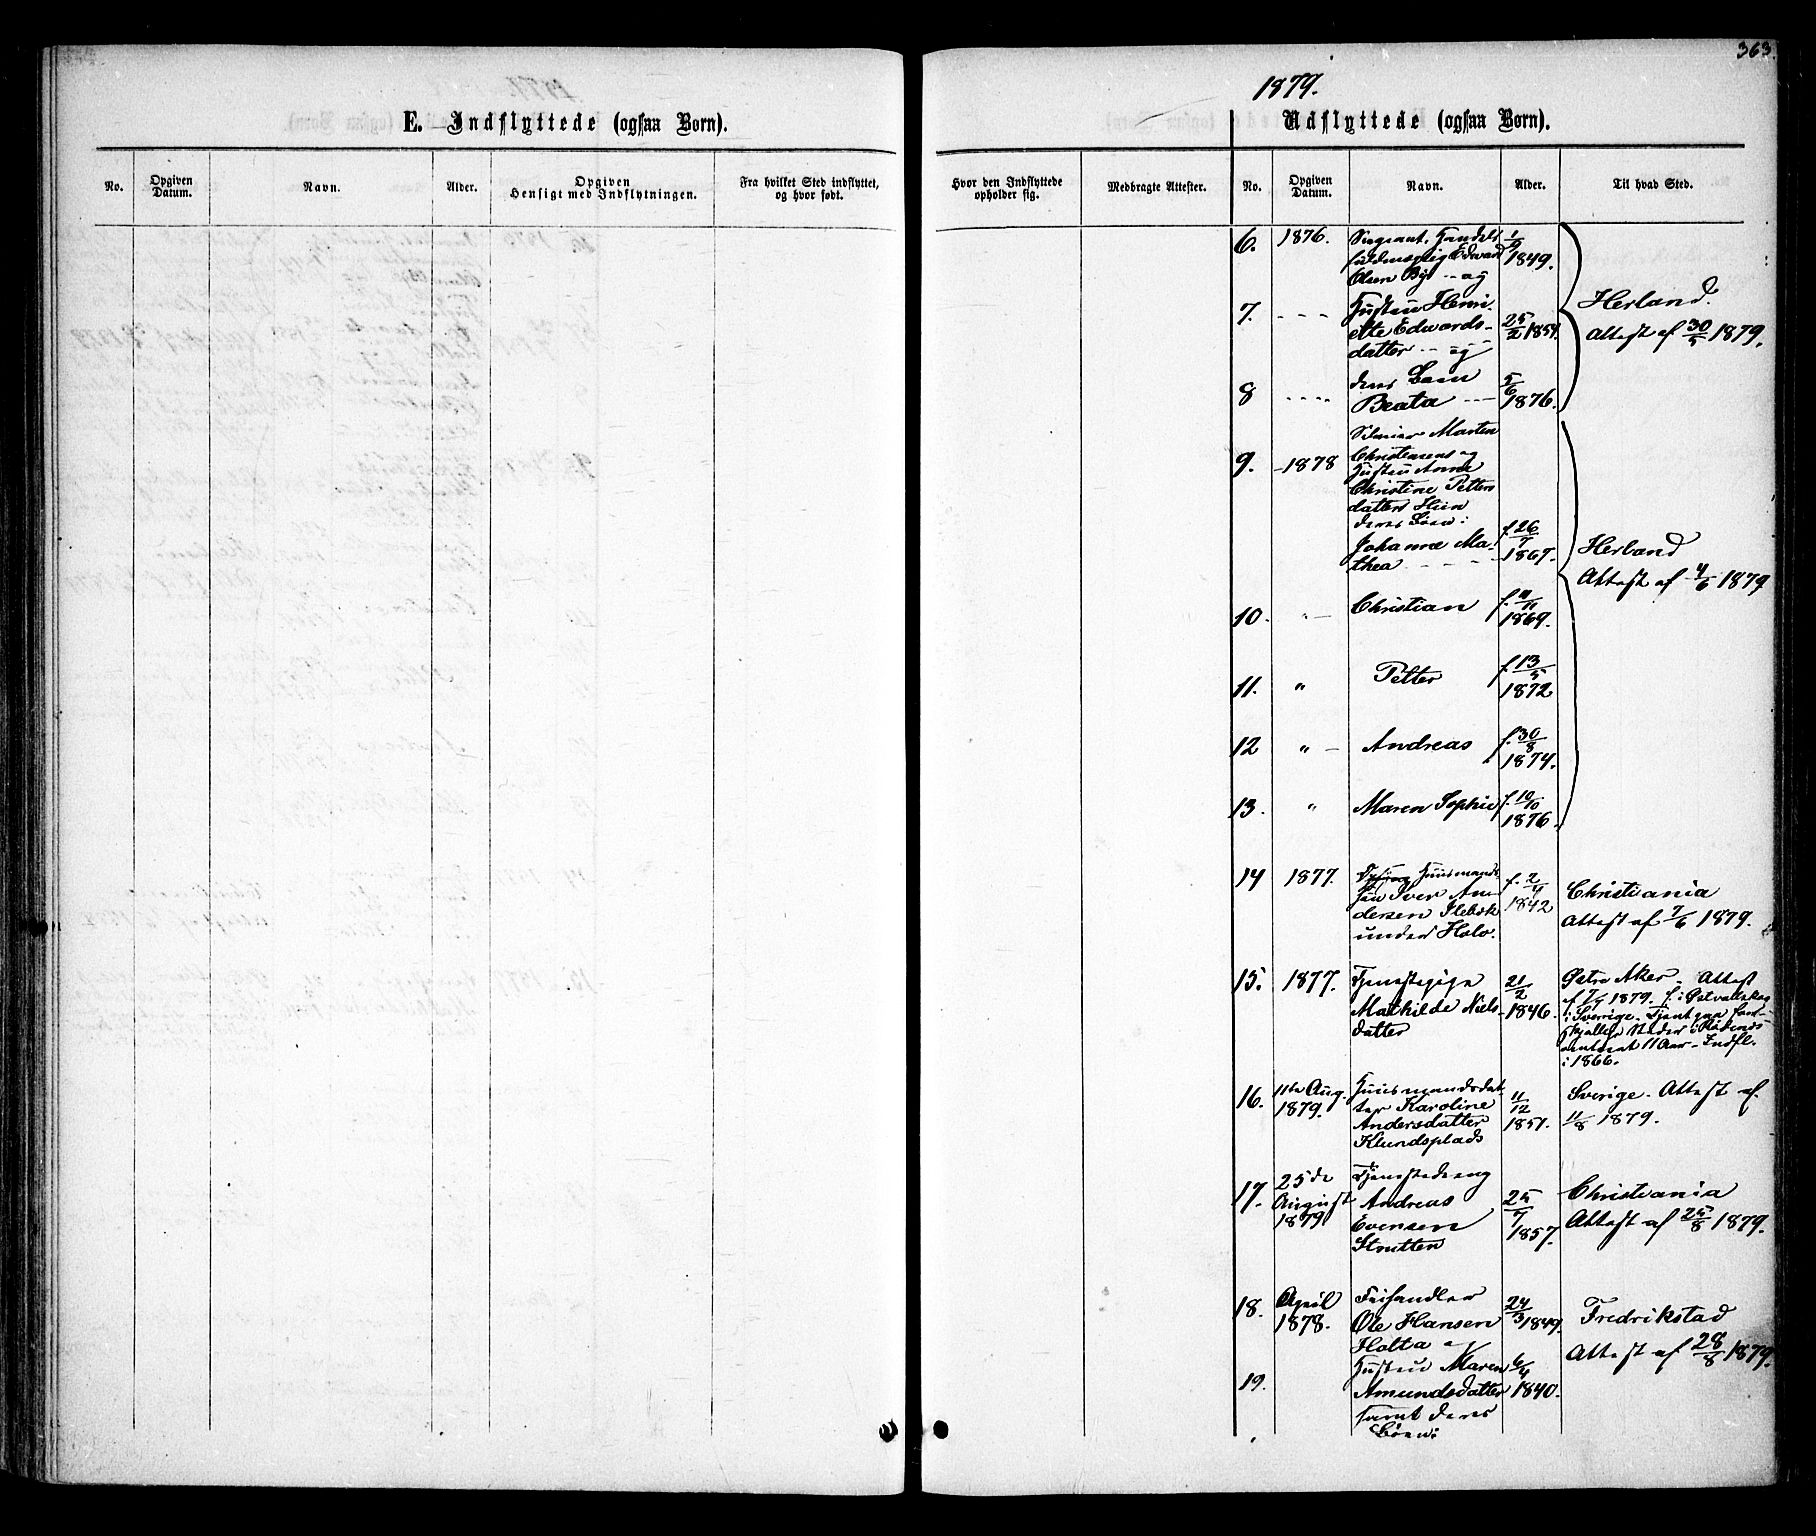 363.
1879.
E. Indflyttede (ogsaa Børn).
Udflyttede (ogsaa Børn).
No.
Opgiven Datum.
Navn.
Alder.
Opgiven Hensigt med Indflytningen.
Fra hvilket Sted indflyttet, og hvor født.
Hvor den Indflyttede opholder sig.
Medbragte Attester.
No.
Opgiven Datum.
Navn.
Alder.
Til hvad Sted.
6. 1876. Sergeant, Handels
Edward 1849.
Olsen og
7. Hustru Henri-
ette Edwards- 25/2 1854.
datter og
Herland.
Attest af 30/5 1879.
8 deres Barn 5/6
Beata 1876.
9. 1878 Marten
Christensens og
Hustru Anne
Christine Petters
datters
deres Børn: f. 26/7
Johanne Ma- 1867.
thea
Herland
Attest af 4/6 1879
10. " Christian f. 11/11
1869.
11. " Petter f. 13/5
1872
12 " Andreas f. 30/8
1874.
13. " Maren Sophie f. 10/10
1876.
14 1877. Huusmands
Iver An- 1842
dersen
under Holo.
Christiania
Attest af 7/6 1879.
15. 1877. Tjenestepige 21/2
Mathilde Niels- 1846.
datter
Østre Aker. Attest
af 7/7 1879. f. i Østvallskog
i Sverige. Tjent paa for-
skjellige Steder i Rødenes
11 Aar. Indfl.
i 1866.
16. 11te Aug. Huusmandsdat-
1879. ter Karoline 11/12
Andersdatter 1851.
Klundsplads
Sverige. Attest af
11/8 1879.
17. 25de Tjenestedreng
August Andreas 25/7
1879 Evensen 1857.
Strutten
Christiania
Attest af 25/8 1879.
18. April Frihandler 24/3 1849.
1878. Ole Hansen
Holta og
Fredrikstad
Attest af 28/8 1879.
19. Hustru Maren 6/4
Amundsdatter 1840.
samt deres
Børn: